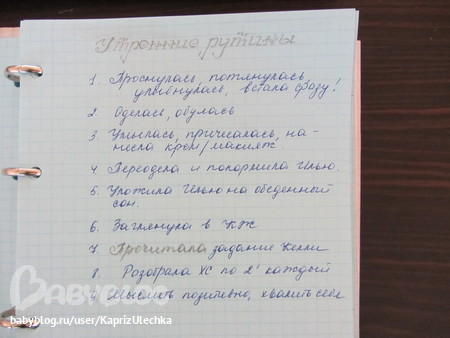 Утренние рутины
1. Проснулась, потянулась,
улыбнулась, встала сразу!
2. Оделась, обулась
3. Умылась, причесалась, на-
несла крем/макияж.
4. Переодела и покормила Гелью.
5. Уложила Гелью на обеденный
сон.
6. Заглянула в КЖ
7. Прочитала задание Келли
8. Разобрала ХС по 2' каждый
9. Мыслить позитивно, хвалить себя
BABYBLOG
babyblog.ru/user/KaprizUlechka